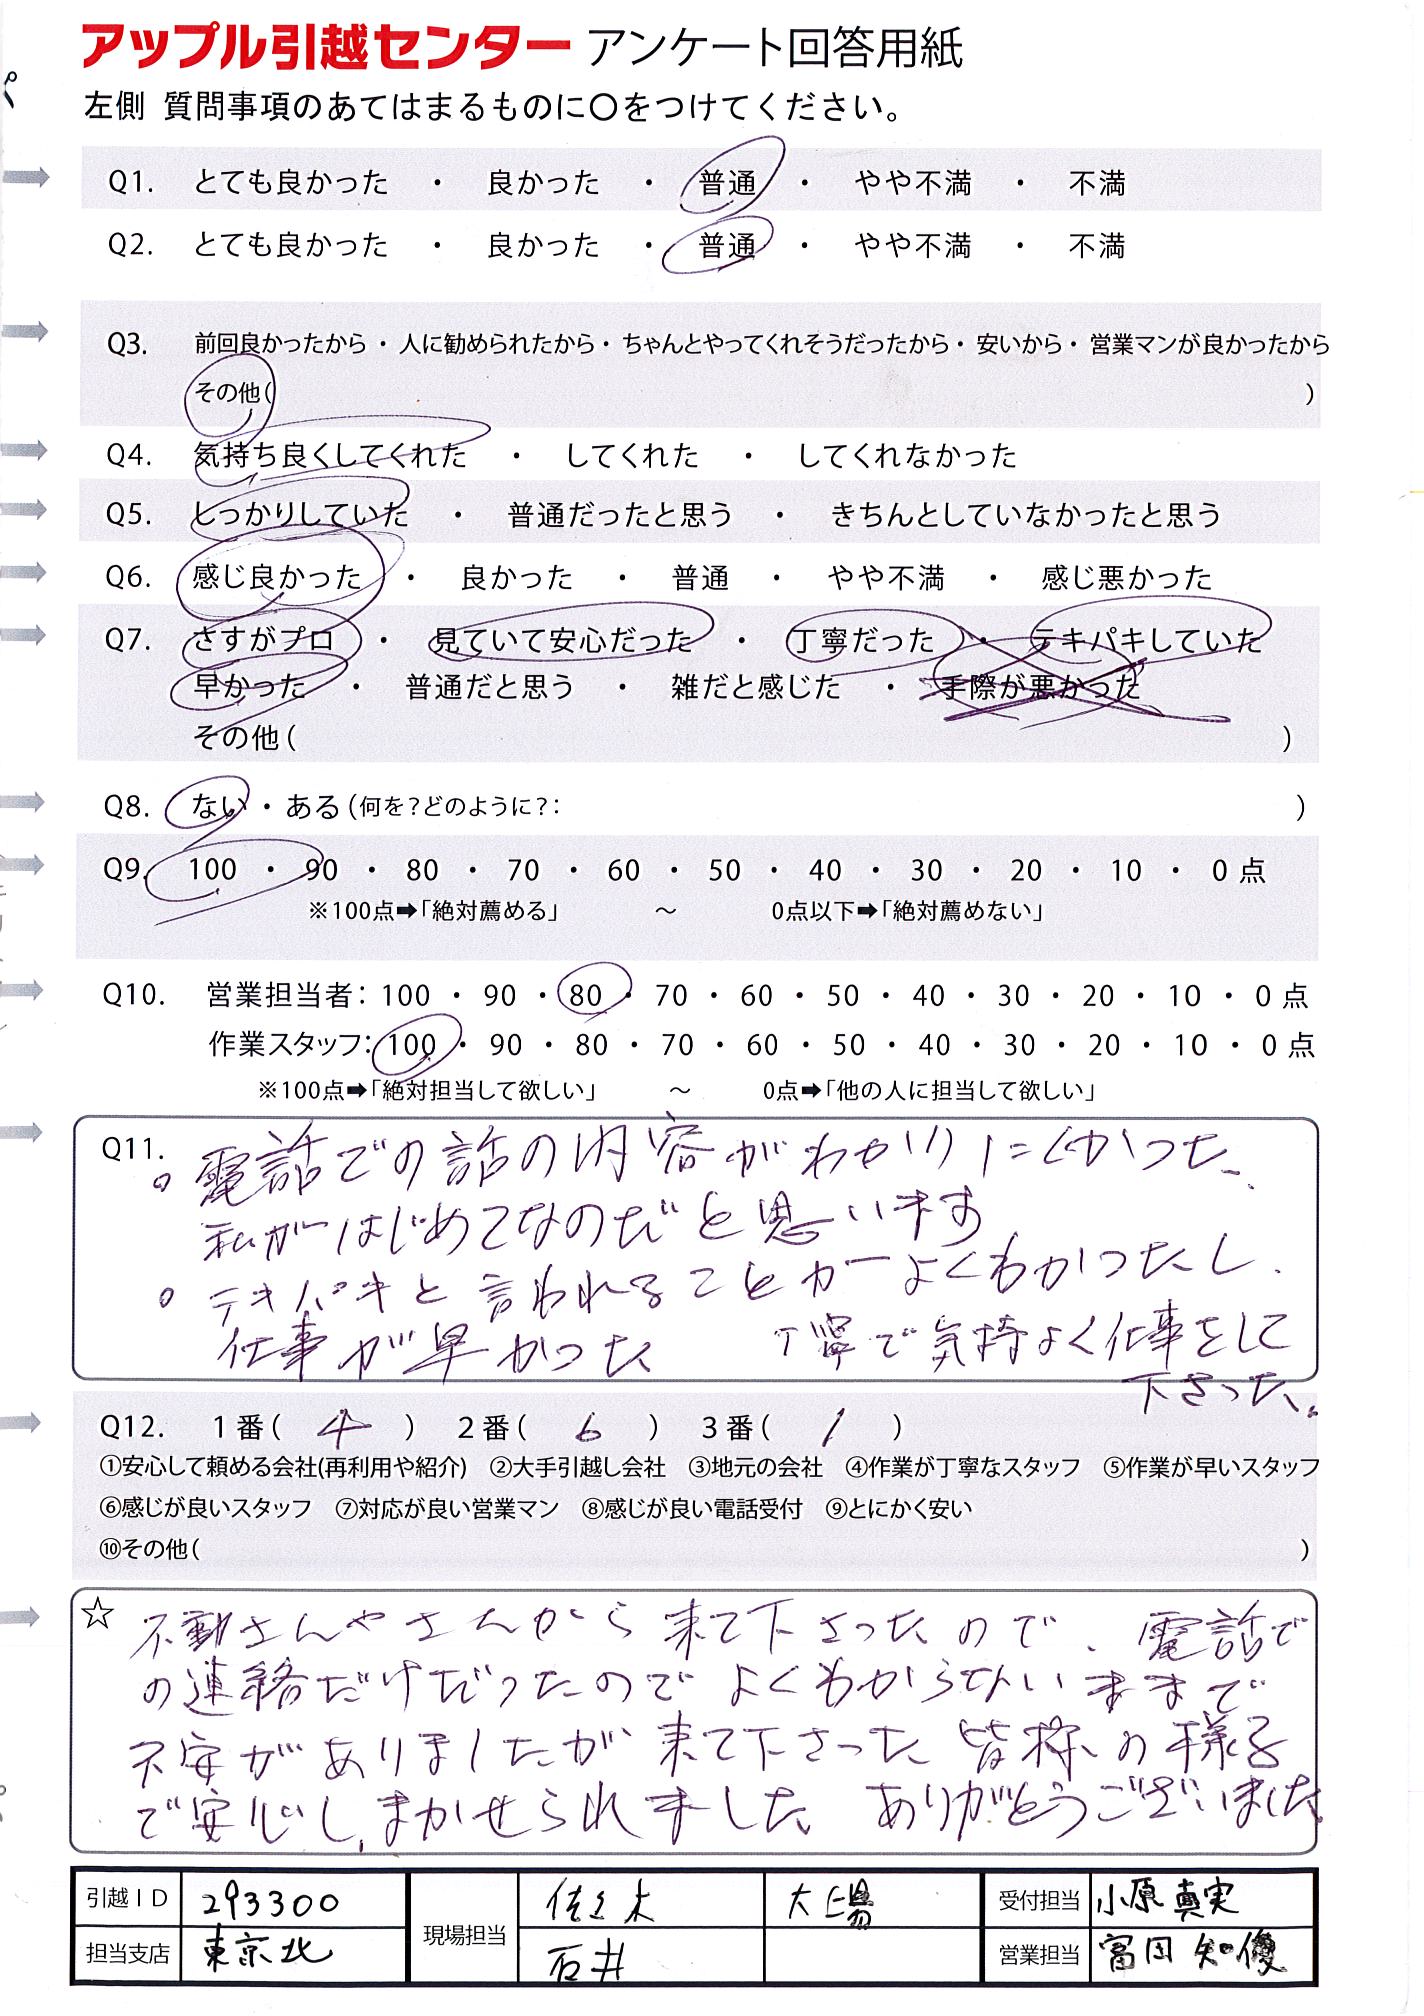 アップル引越センター アンケート回答用紙
左側 質問事項のあてはまるものに〇をつけてください。
Q1. とても良かった ・ 良かった ・ 普通 ・ やや不満 ・ 不満
Q2. とても良かった ・ 良かった ・ 普通 ・ やや不満 ・ 不満
Q3. 前回良かったから ・ 人に勧められたから ・ ちゃんとやってくれそうだったから ・ 安いから ・ 営業マンが良かったから
その他( )
Q4. 気持ち良くしてくれた ・ してくれた ・ してくれなかった
Q5. しっかりしていた ・ 普通だったと思う ・ きちんとしていなかったと思う
Q6. 感じ良かった ・ 良かった ・ 普通 ・ やや不満 ・ 感じ悪かった
Q7. さすがプロ ・ 見ていて安心だった ・ 丁寧だった ・ テキパキしていた
早かった ・ 普通だと思う ・ 雑だと感じた ・ 手際が悪かった
その他( )
Q8. ない ・ ある (何を?どのように?: )
Q9. 100 ・ 90 ・ 80 ・ 70 ・ 60 ・ 50 ・ 40 ・ 30 ・ 20 ・ 10 ・ 0 点
※100点➡「絶対薦める」 ～ 0点以下➡「絶対薦めない」
Q10. 営業担当者: 100 ・ 90 ・ 80 ・ 70 ・ 60 ・ 50 ・ 40 ・ 30 ・ 20 ・ 10 ・ 0 点
作業スタッフ: 100 ・ 90 ・ 80 ・ 70 ・ 60 ・ 50 ・ 40 ・ 30 ・ 20 ・ 10 ・ 0 点
※100点➡「絶対担当して欲しい」 ～ 0点➡「他の人に担当して欲しい」
Q11. 。電話での話の内容がわかりにくかった、
私がはじめてなのだと思います
。テキパキと言われることがよくわかったし、
仕事が早かった 丁寧で気持よく仕事をして
下さった。
Q12. 1番( 4 ) 2番( 6 ) 3番( 1 )
①安心して頼める会社(再利用や紹介) ②大手引越し会社 ③地元の会社 ④作業が丁寧なスタッフ ⑤作業が早いスタッフ
⑥感じが良いスタッフ ⑦対応が良い営業マン ⑧感じが良い電話受付 ⑨とにかく安い
⑩その他( )
☆ 不動さんやさんから来て下さったので、電話で
の連絡だけだったのでよくわからないままで
不安がありましたが来て下さった皆様の様子
で安心し、まかせられました ありがとうございました
引越ID 293300 現場担当 佐々木 大場 受付担当 小原真実
担当支店 東京北 石井 営業担当 富田 知優